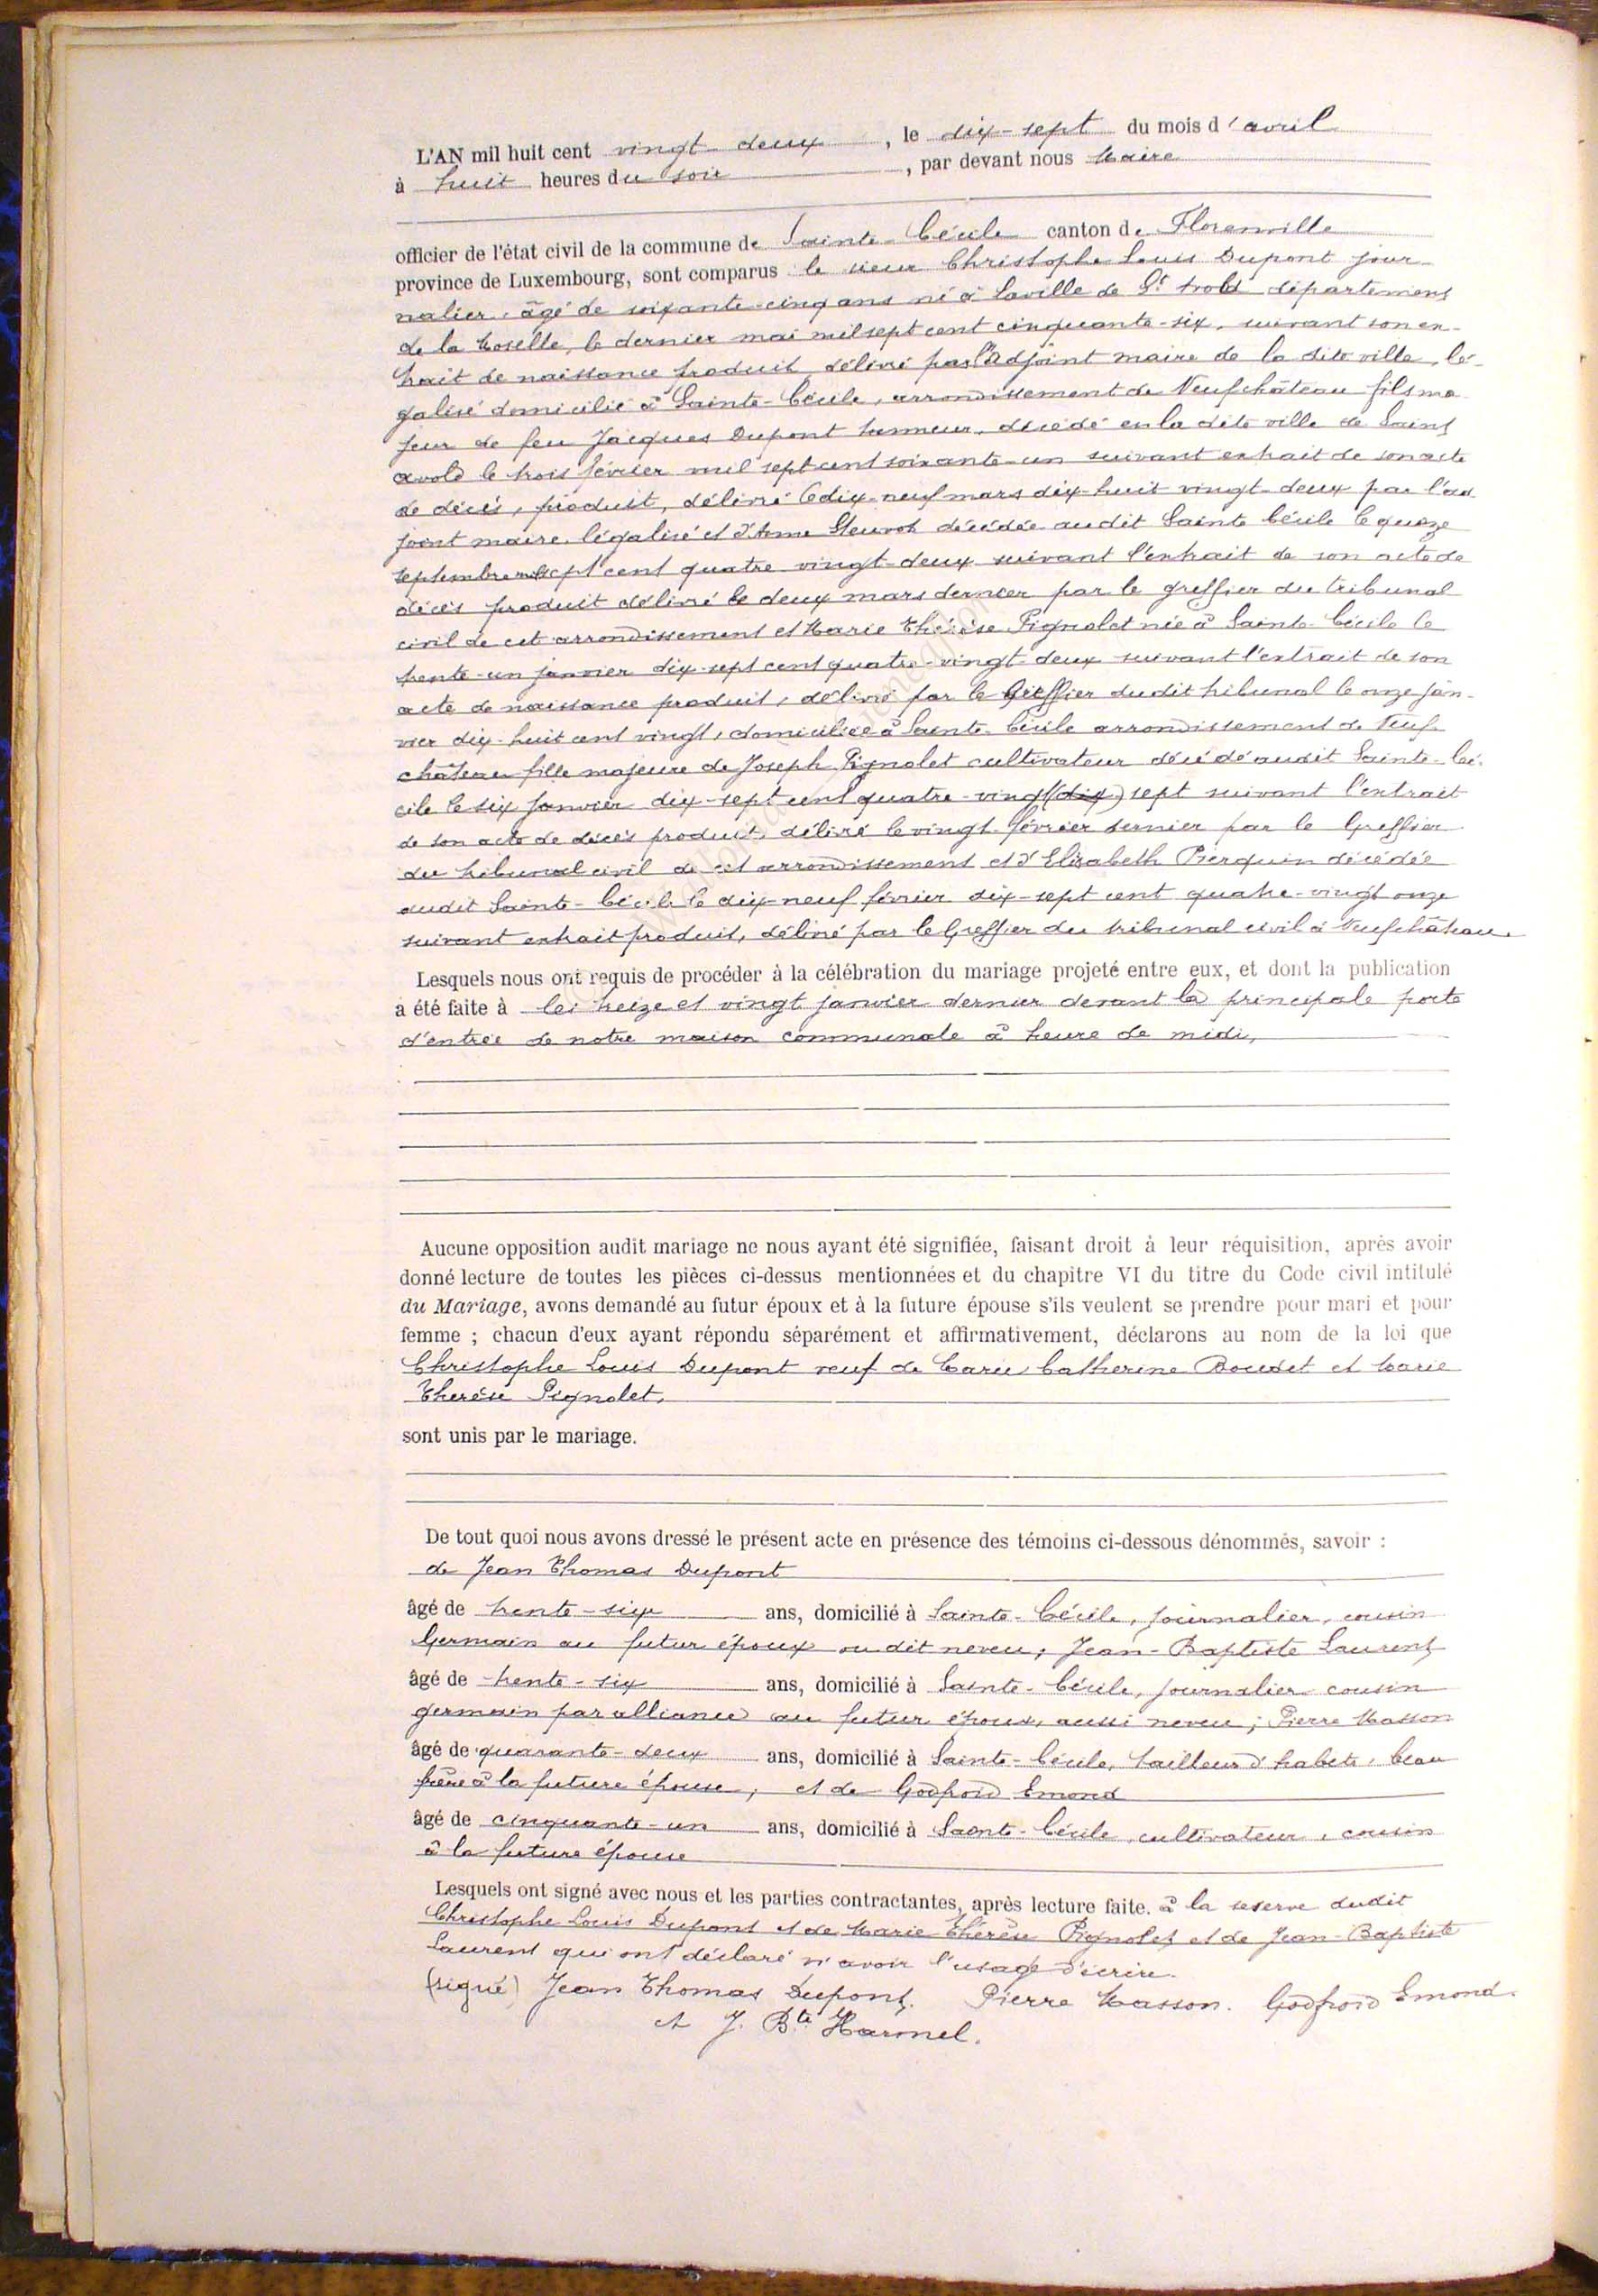 L'AN mil huit cent vingt-deux, le dix-sept du mois d'avril
à huit heures du soir, par devant nous Maire
officier de l'état civil de la commune de Sainte-Cécile canton de Florenville
province de Luxembourg, sont comparus le sieur Christophe Louis Dupont jour-
nalier, âgé de soixante-cinq ans né à Laville de St Avold département
de la Moselle, le dernier mai mil sept cent cinquante-six, suivant son ex-
trait de naissance produit, délivré par l'adjoint maire de la dite ville, lé-
galisé domicilié à Sainte-Cécile, arrondissement de Neufchâteau fils ma-
jeur de feu Jacques Dupont tanneur, décédé en la dite ville de Saint
avold le trois février mil sept cent soixante-un suivant extrait de son acte
de décès, produit, délivré le dix-neuf mars dix-huit vingt-deux par l'ad
joint maire, légalisé et d'Anne décédée audit Sainte Cécile le quinze
septembre mil sept cent quatre vingt-deux suivant l'extrait de son acte de
décès produit délivré le deux mars dernier par le greffier du tribunal
civil de cet arrondissement et Marie Thérèse Pignolet née à Sainte-Cécile le
trente-un janvier dix-sept cent quatre-vingt-deux suivant l'extrait de son
acte de naissance produit, délivré par le Greffier dudit tribunal le onze jan-
vier dix-huit cent vingt, domiciliée à Sainte-Cécile arrondissement de Neuf-
château fille majeure de Joseph Pignolet cultivateur décédé audit Sainte-Cé-
cile le six janvier dix-sept cent quatre-vingt (dix) sept suivant l'extrait
de son acte de décès produit, délivré le vingt février dernier par le Greffier
du tribunal civil de cet arrondissement et d'Elisabeth Pierquin décédée
audit Sainte-Cécile le dix-neuf février dix-sept cent quatre-vingt onze
suivant extrait produit, délivré par le Greffier du tribunal civil à Neufchâteau.
Lesquels nous ont requis de procéder à la célébration du mariage projeté entre eux, et dont la publication
a été faite à les treize et vingt janvier dernier devant la principale porte
d'entrée de notre maison communale à heure de midi,
Aucune opposition audit mariage ne nous ayant été signifiée, faisant droit à leur réquisition, après avoir
donné lecture de toutes les pièces ci-dessus mentionnées et du chapitre VI du titre du Code civil intitulé
du Mariage, avons demandé au futur époux et à la future épouse s'ils veulent se prendre pour mari et pour
femme ; chacun d'eux ayant répondu séparément et affirmativement, déclarons au nom de la loi que
Christophe Louis Dupont veuf de Marie Catherine Boudet et Marie
Therése Pignolet,
sont unis par le mariage.
De tout quoi nous avons dressé le présent acte en présence des témoins ci-dessous dénommés, savoir :
de Jean Thomas Dupont
âgé de trente-six ans, domicilié à Sainte-Cécile, journalier, cousin
Germain au futur époux ou dit neveu; Jean-Baptiste Laurent
âgé de trente-six ans, domicilié à Sainte-Cécile, journalier cousin
germain par alliance au futur époux, aussi neveu; Pierre Masson
âgé de quarante-deux ans, domicilié à Sainte-Cécile, tailleur d'habits, beau
frère à la future épouse, et de Godfroid Emond
âgé de cinquante-un ans, domicilié à Sainte-Cécile, cultivateur, cousin
à la future épouse
Lesquels ont signé avec nous et les parties contractantes, après lecture faite. à la reserve dudit
Christophe Louis Dupont et de Marie-Thérèse Pignolet et de Jean-Baptiste
Laurent qui ont déclaré n'avoir l'usage d'écrire.
(signé) Jean Thomas Dupont. Pierre Masson. Godfroid Emond.
et J. Bte Harmel.